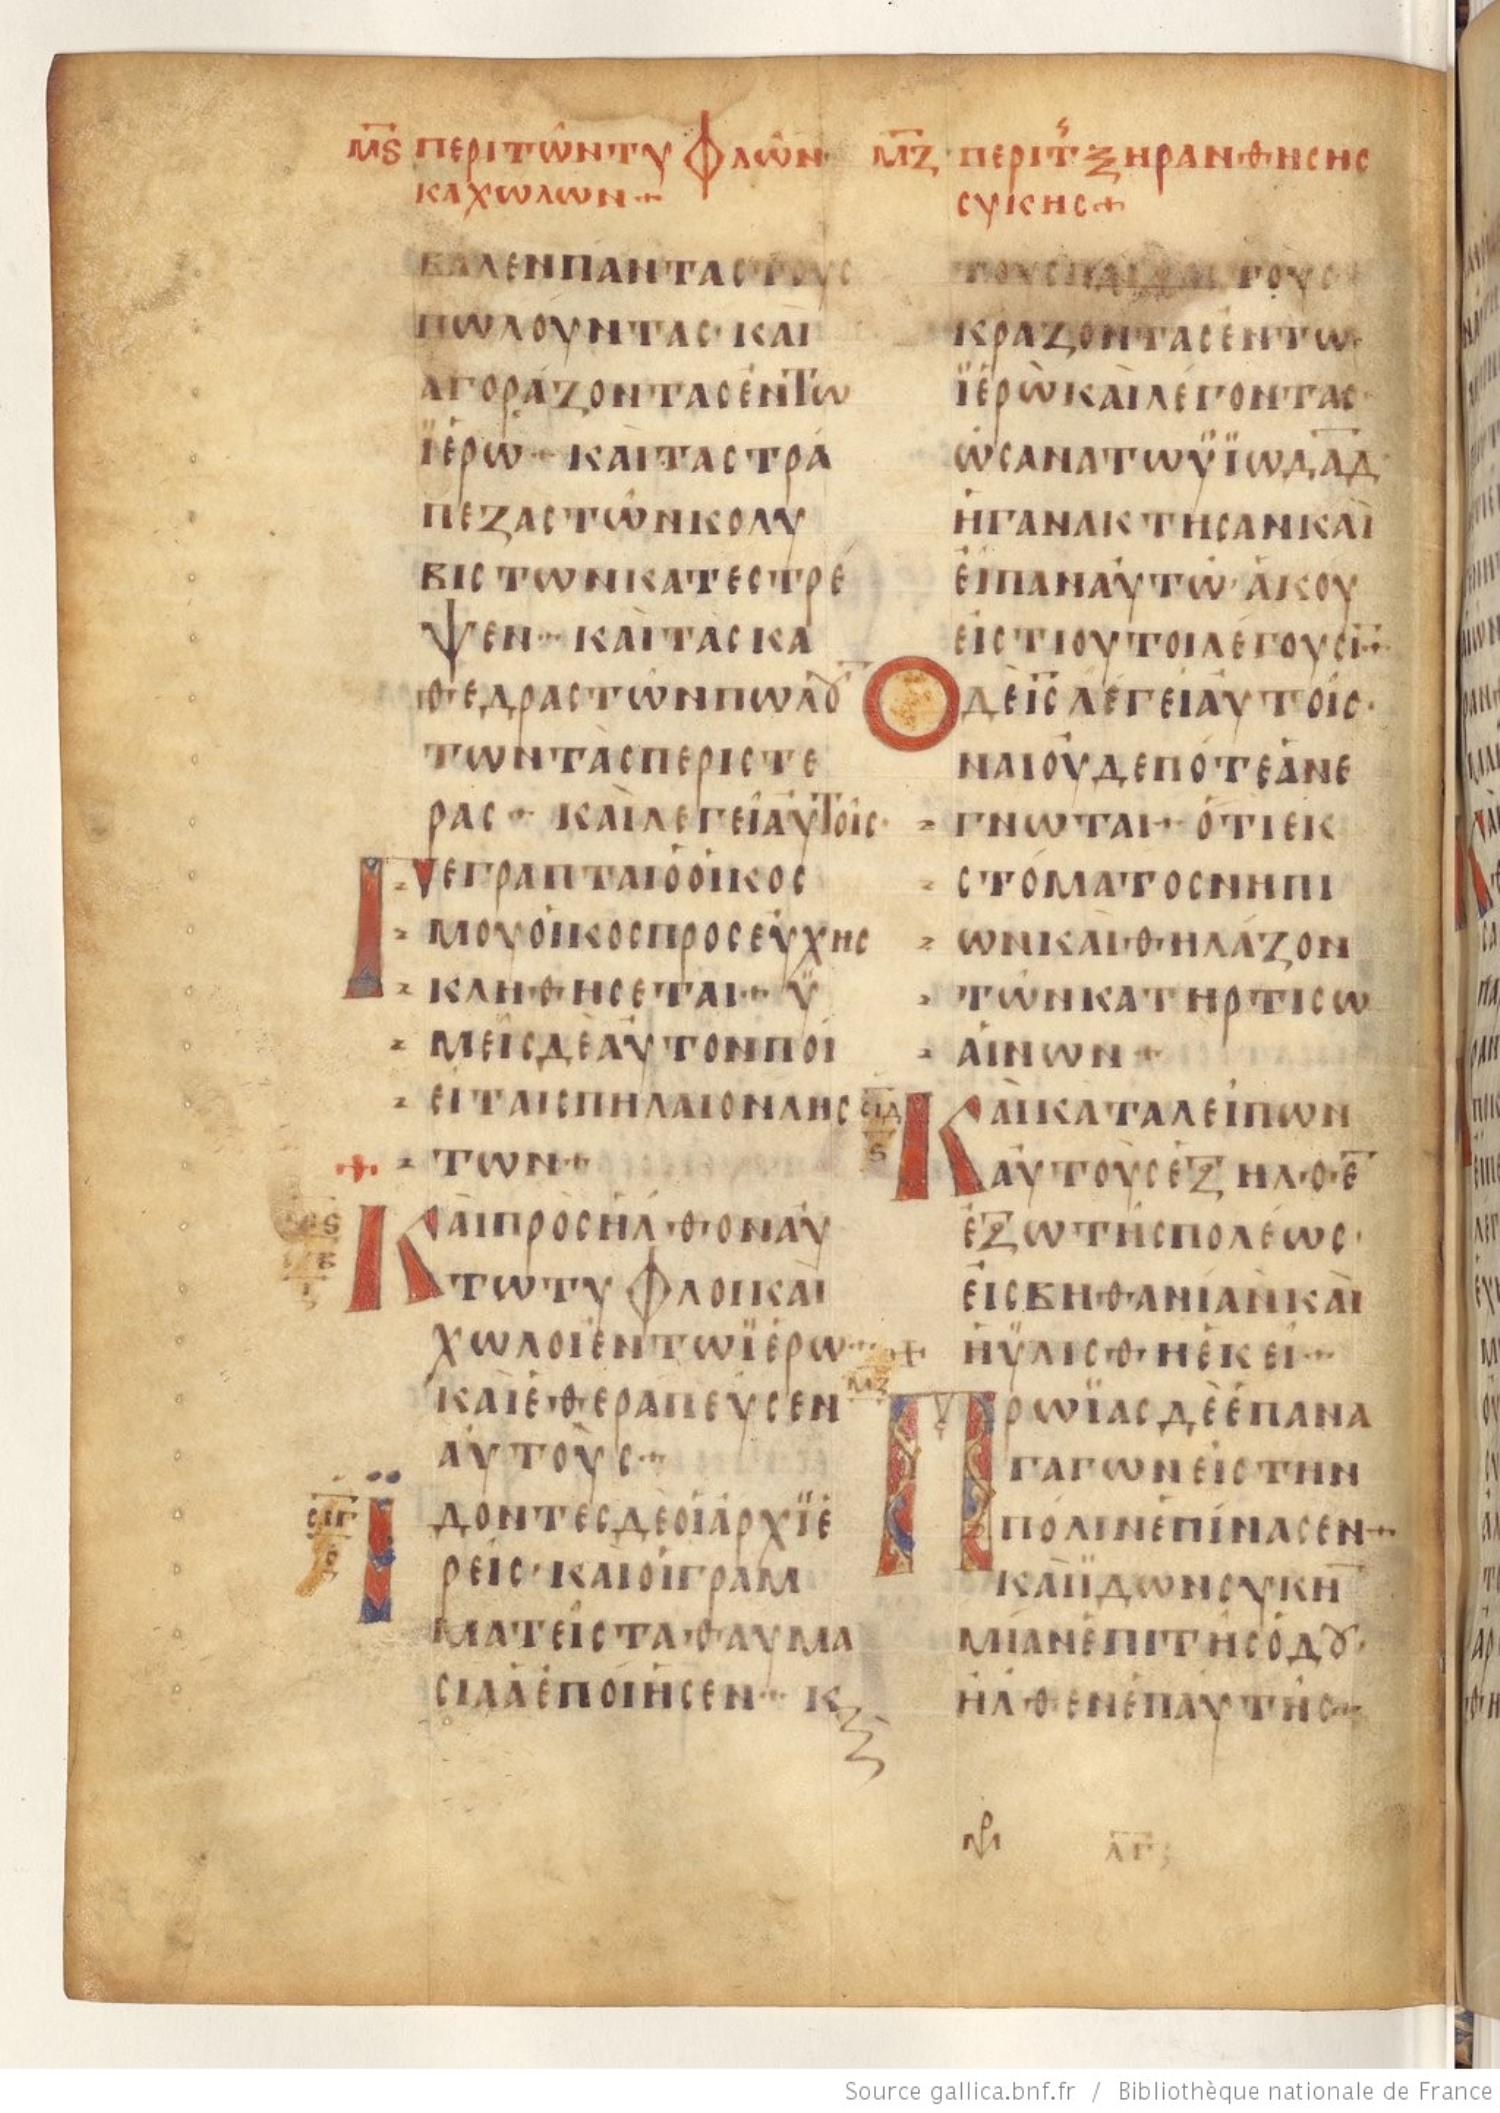 μς περι των τυφλων
κα χωλων +
βαλεν παντας τους
πωλουντας · και
αγοραζοντας εν τω
ϊερω · και τας τρα
πεζας των κολυ
βιστων κατεστρε
ψεν · και τας κα
θεδρας των πωλȣ̄
των τας περιστε
ρας · και λεγει αυτοις ·
Γεγραπται ο οικος
μου οικος προσευχης
κληθησεται · ϋ
μεις δε αυτον ποι
ειται σπηλαιον λης
των +
Και προσηλθον αυ
τω τυφλοι και
χωλοι εν τω ϊερω ·
και εθεραπευσεν
αυτους ·
σιγ
Ϊδοντες δε οι αρχϊε
ρεις · και οι γραμ
ματεις τα θαυμα
σια α εποιησεν · κ
μζ περι τ ξηρανθησης
συκης +
τους παιδας τους
κραζοντας εν τω
ϊερω και λεγοντας ·
ωσανα τω ϋϊω δ̅α̅δ̅
ηγανακτησαν και
ειπαν αυτω · ακου
εις τι ουτοι λεγουσι̅ ·
Ο δε ι̅ς̅ λεγει αυτοις ·
ναι ουδεποτε ανε
γνωται · οτι εκ
στοματος νηπι
ων και θηλαζον
των κατηρτισω
αινων +
σιδ
ς
Και καταλειπων
αυτους εξηλθε̅
εξω της πολεως ·
εις βηθανιαν και
ηϋλισθη εκει ·
μζ
Πρωϊας δε επανα
γαγων εις την
πολιν επινασεν +
και ϊδων συκη̅
μιαν επι της οδȣ ·
ηλθεν επ αυτης ·
λγ
Source gallica.bnf.fr / Bibliothèque nationale de France